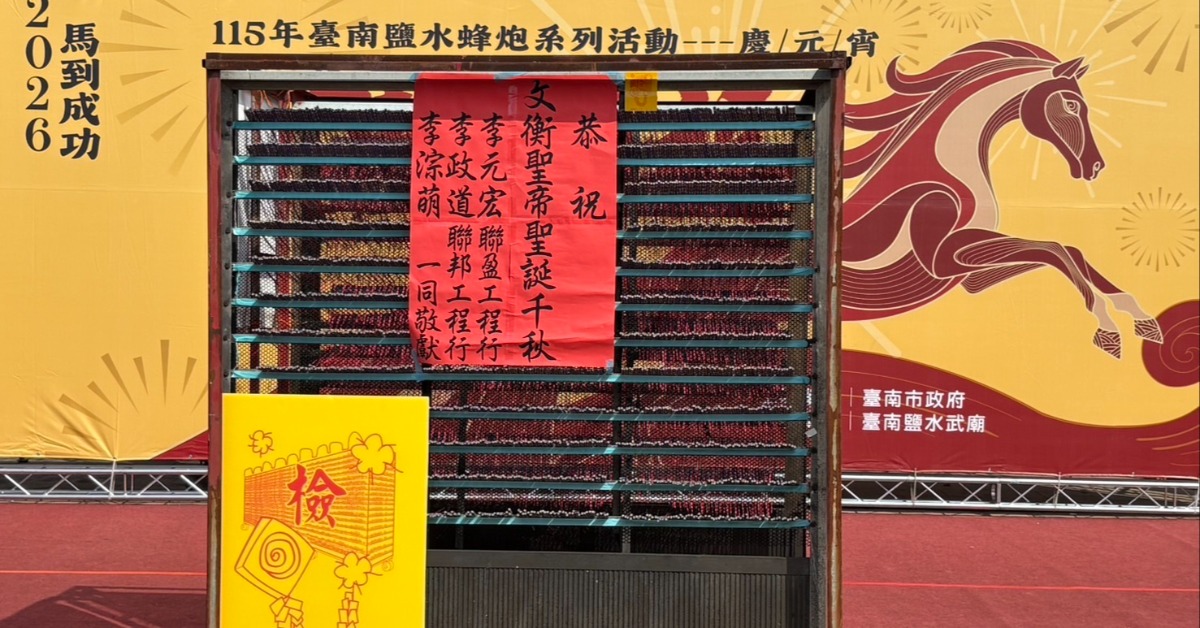 2026
馬到成功
115年臺南鹽水蜂炮系列活動---慶/元/宵
恭祝
文衡聖帝聖誕千秋
李元宏 聯盈工程行
李政道 聯邦工程行
李淙萌 一同敬獻
檢
臺南市政府
臺南鹽水武廟